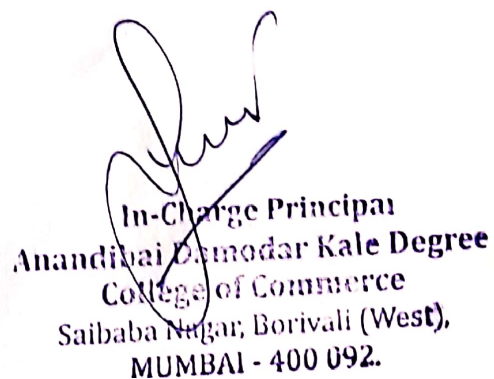 In-Charge Principal
Anandibai Damodar Kale Degree
College of Commerce
Saibaba Nagar, Borivali (West),
MUMBAI - 400 092.